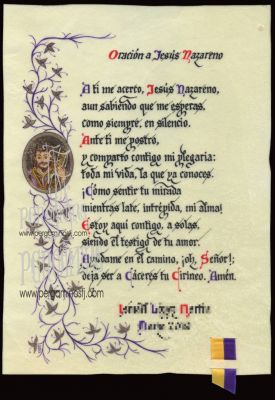 Oración a Jesús Nazareno
A ti me acerco, Jesús Nazareno,
aun sabiendo que me esperas,
como siempre, en silencio.
Ante ti me postro,
y comparto contigo mi plegaria:
toda mi vida, la que ya conoces.
¡Cómo sentir tu mirada
mientras late, intrépida, mi alma!
Estoy aquí contigo, a solas,
siendo el testigo de tu amor.
Ayúdame en el camino, ¡oh, Señor!;
deja ser a Cáceres tu Cirineo. Amén.
www.pergaminosfj.com
www.pergaminosfj.com